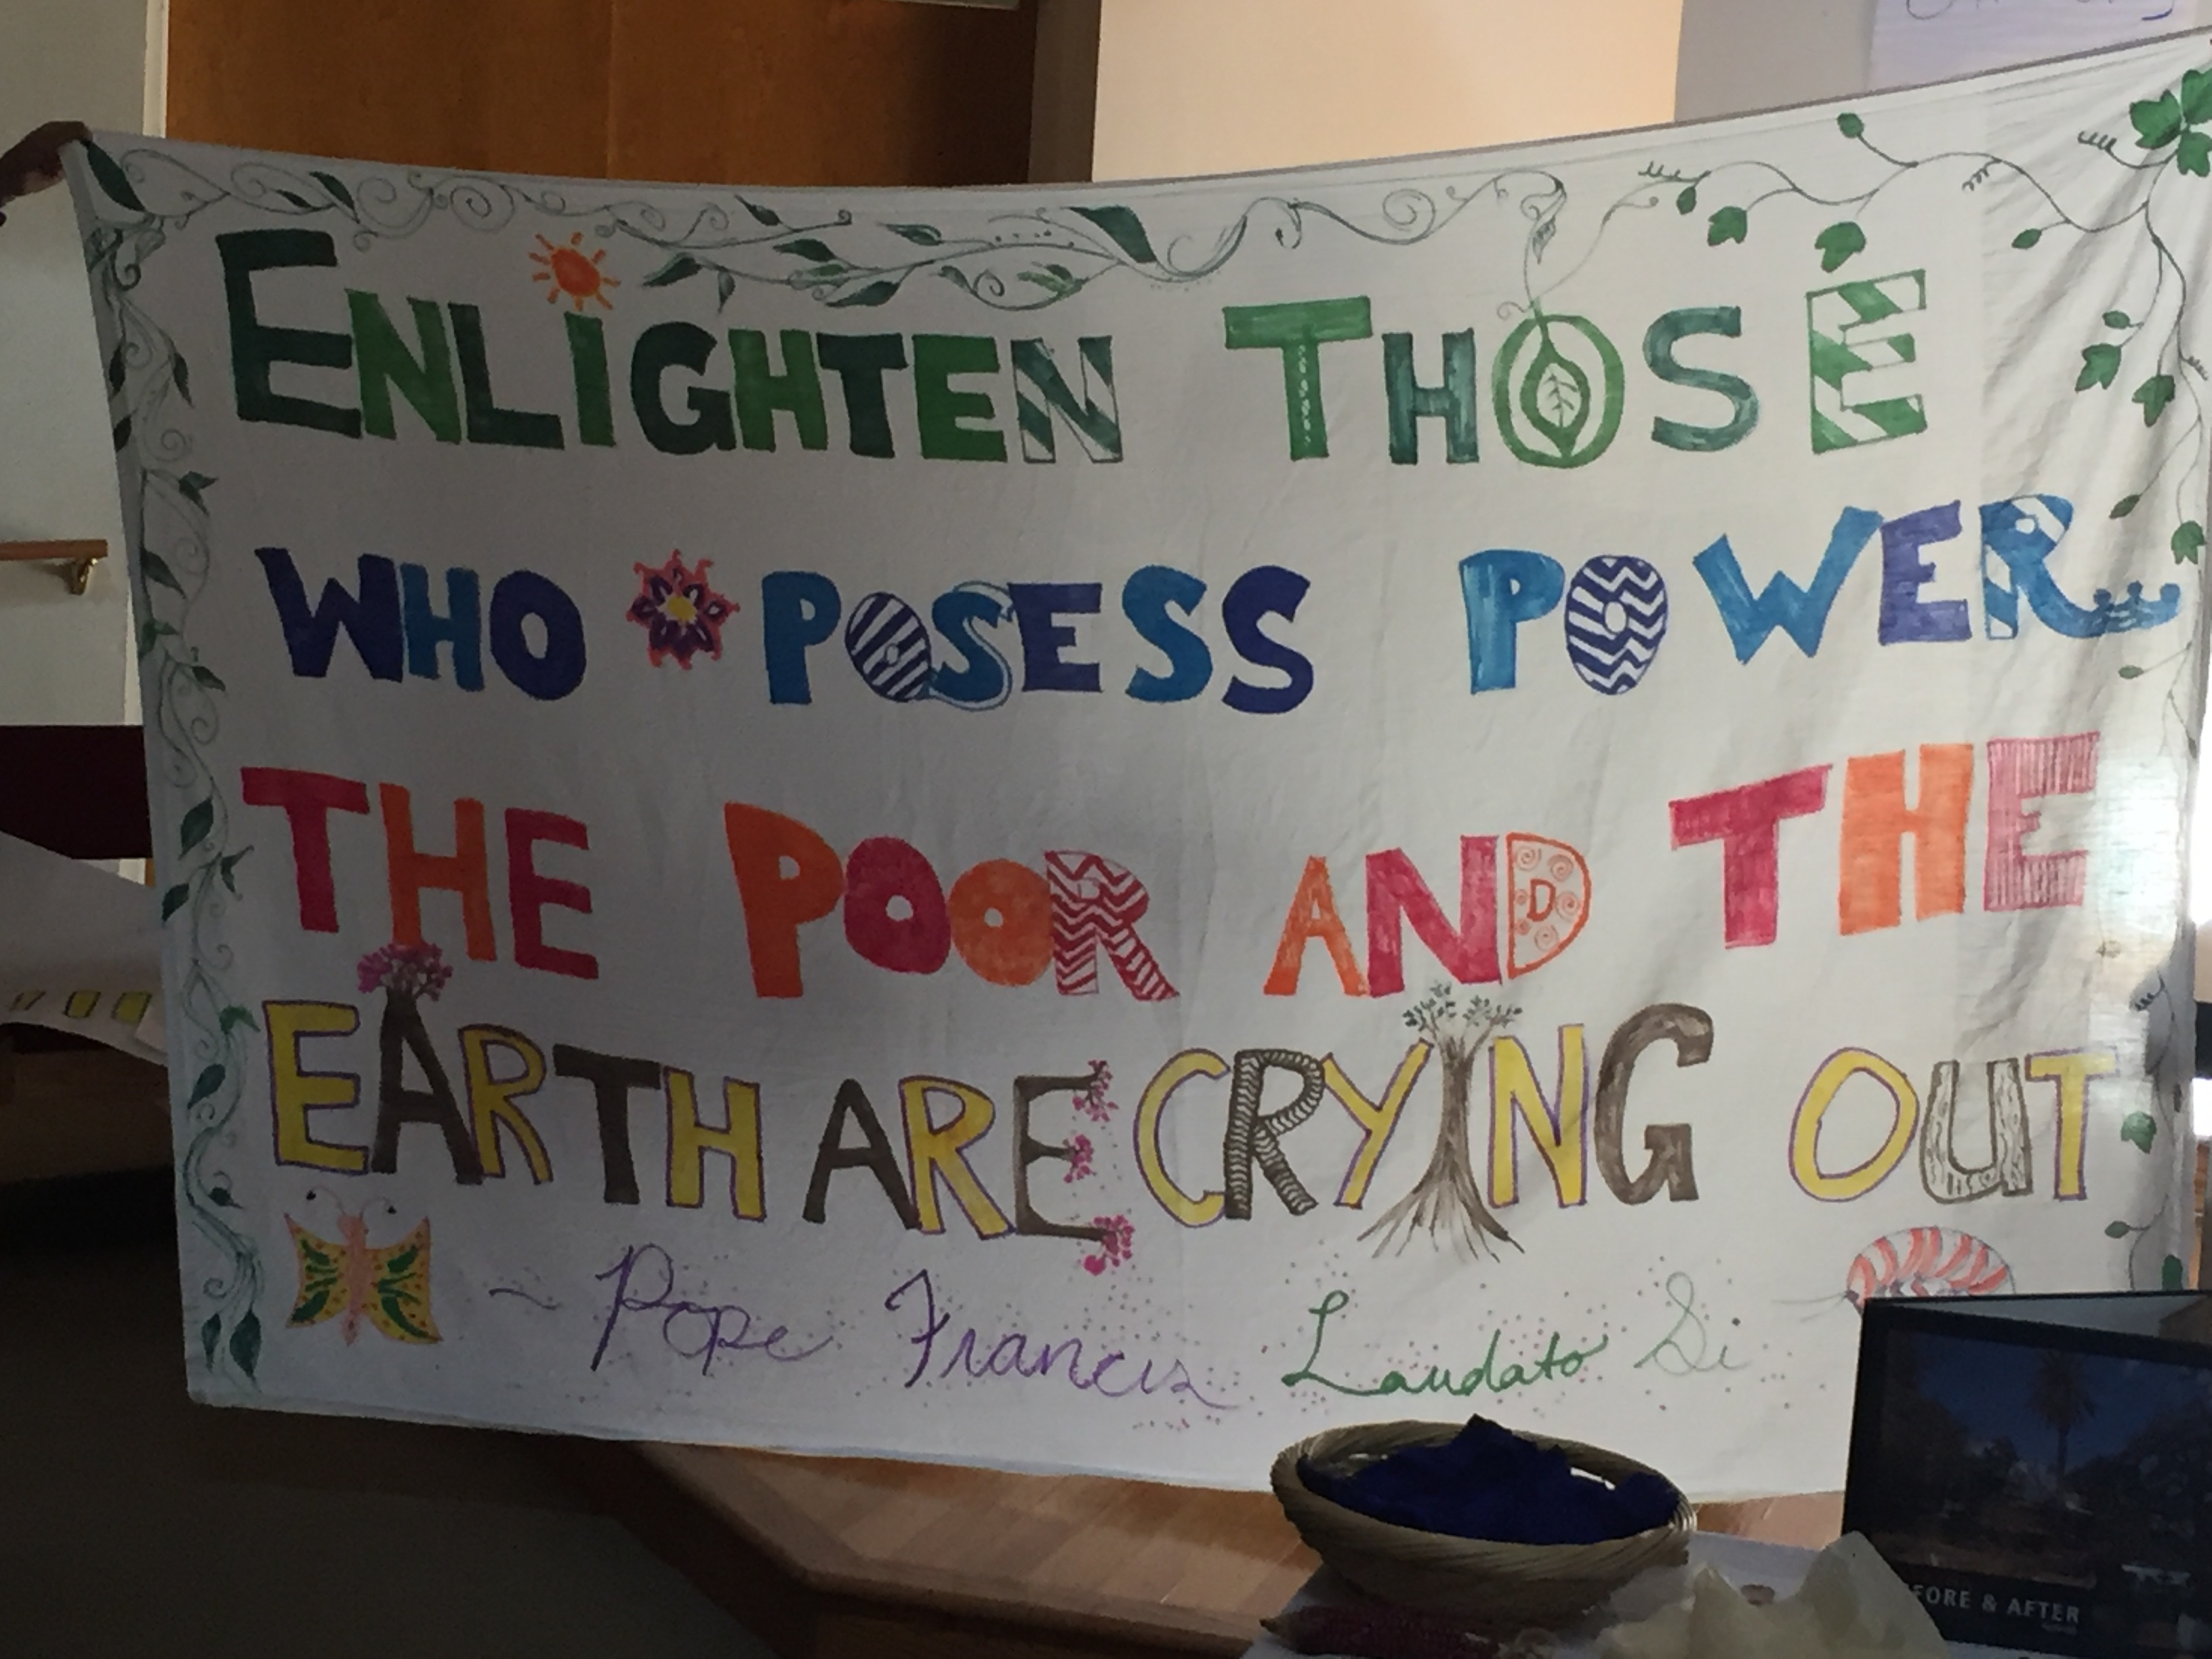 ENLiGHTEN THOSE
WHO POSESS POWER
THE POOR AND THE
EARTH ARE CRYING OUT
~ Pope Francis Laudato Si
& AFTER